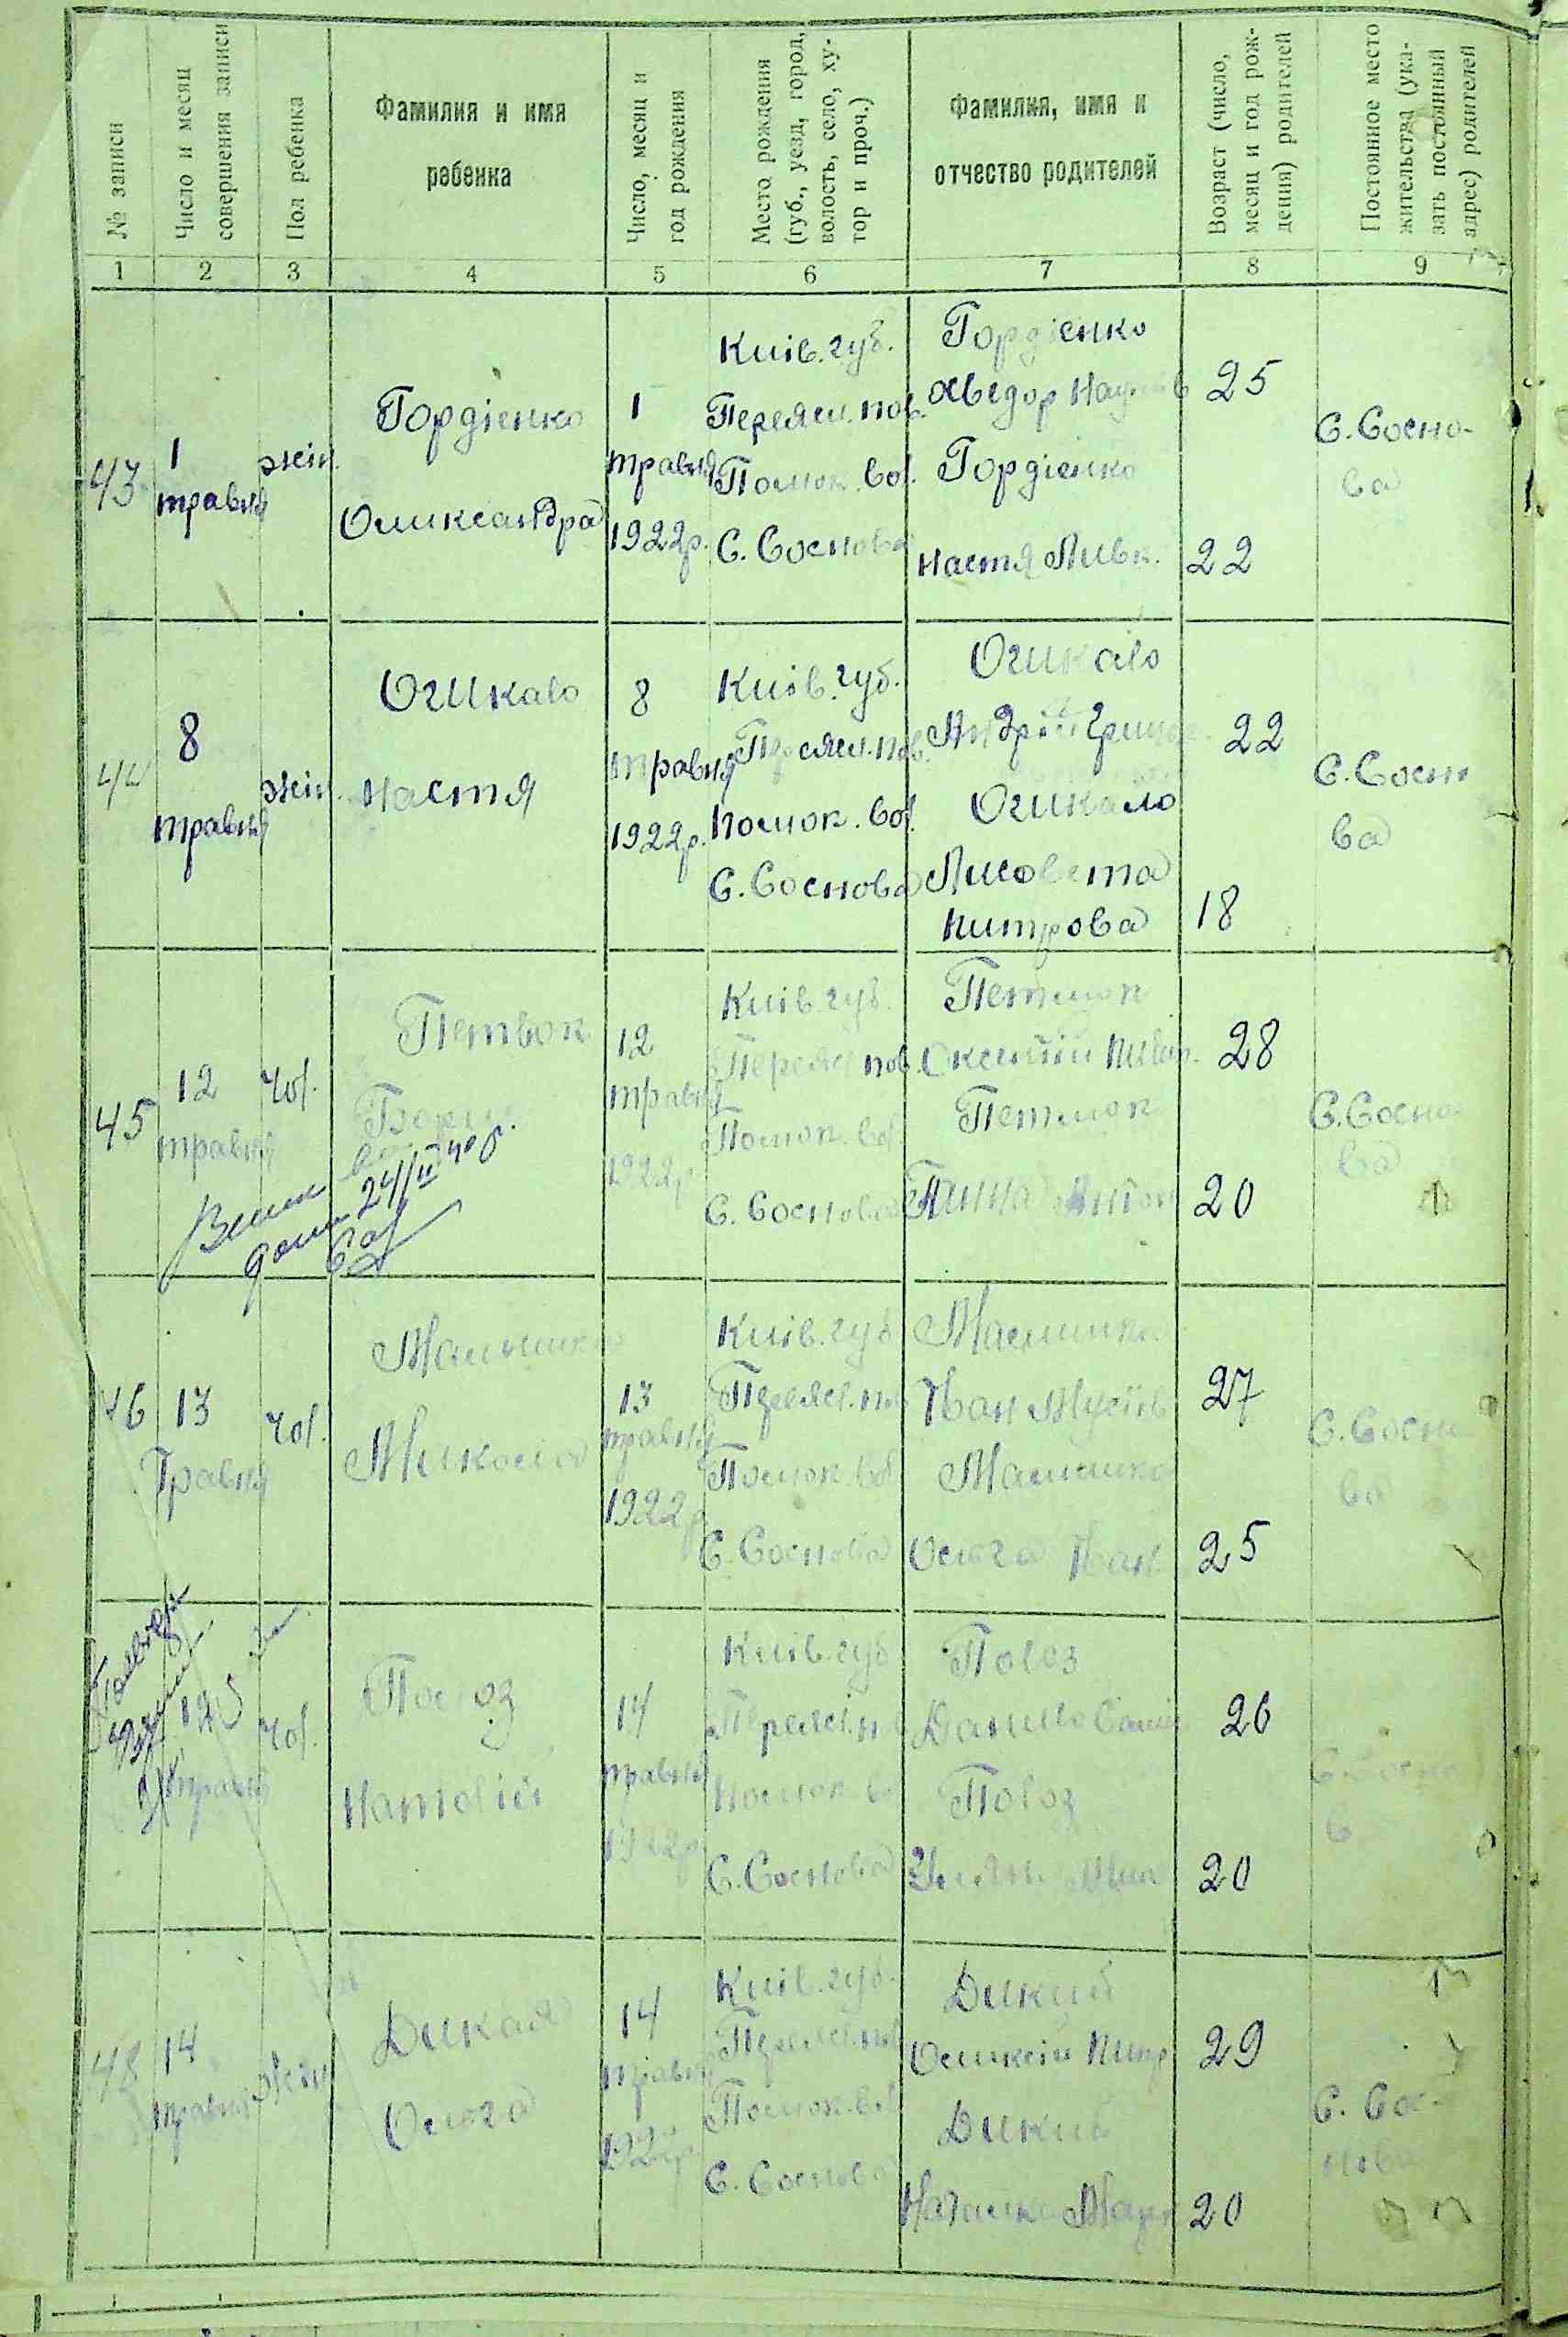 № записи
Число и месяц
совершения записи
Пол ребенка
Фамилия и имя
ребенка
Число, месяц и
год рождения
Место рождения
(губ., уезд, город,
волость, село, ху-
тор и проч.)
Фамилия, имя и
отчество родителей
Возраст (число,
месяц и год рож-
дения) родителей
Постоянное место
жительства (ука-
зать постоянный
адрес) родителей
1 2 3 4 5 6 7 8 9
43
1
травня
жін.
Гордіенко
Оликсандра
1
травня
1922р.
Київ. губ.
Переясл. пов.
Помок. вол.
С. Соснова
Гордіенко
Хведор
Гордіенко
Настя
25
22
С. Сосно-
ва
44
8
травня
жін.
Огикало
Настя
8
травня
1922р.
Київ. губ.
Переясл. пов.
Помок. вол.
С. Соснова
Огикало
Андрій
Огикало
Лисовета
Митрова
22
18
С. Сосно
ва
45
12
травня
чол.
Петлюк
12
травня
1922р.
Київ. губ.
Переясл. пов.
Помок. вол.
С. Соснова
Петлюк
Петлюк
28
20
С. Сосно-
ва
46
13
Травня
чол.
Малышко
Микола
13
травня
1922р
Київ. губ
Переясл. пов
Помок. вол
С. Соснова
Малишко
Іван Мусіїв
Малишко
Ольга Іван
27
25
С. Сосно
ва
травня
чол.
Полоз
Натолій
14
травня
1922р
Київ. губ
Переясл. п
Помок. во
С. Соснова
Полоз
Данило
Полоз
26
20
С. Сосно
в
48
14
травня
жін
Дикая
Ольга
14
травня
1922р
Київ. губ.
Переясл. пов
Помок. вол
С. Соснова
Дикий
Оликсій
Дикий
Наталка
29
20
С. Сос-
нова